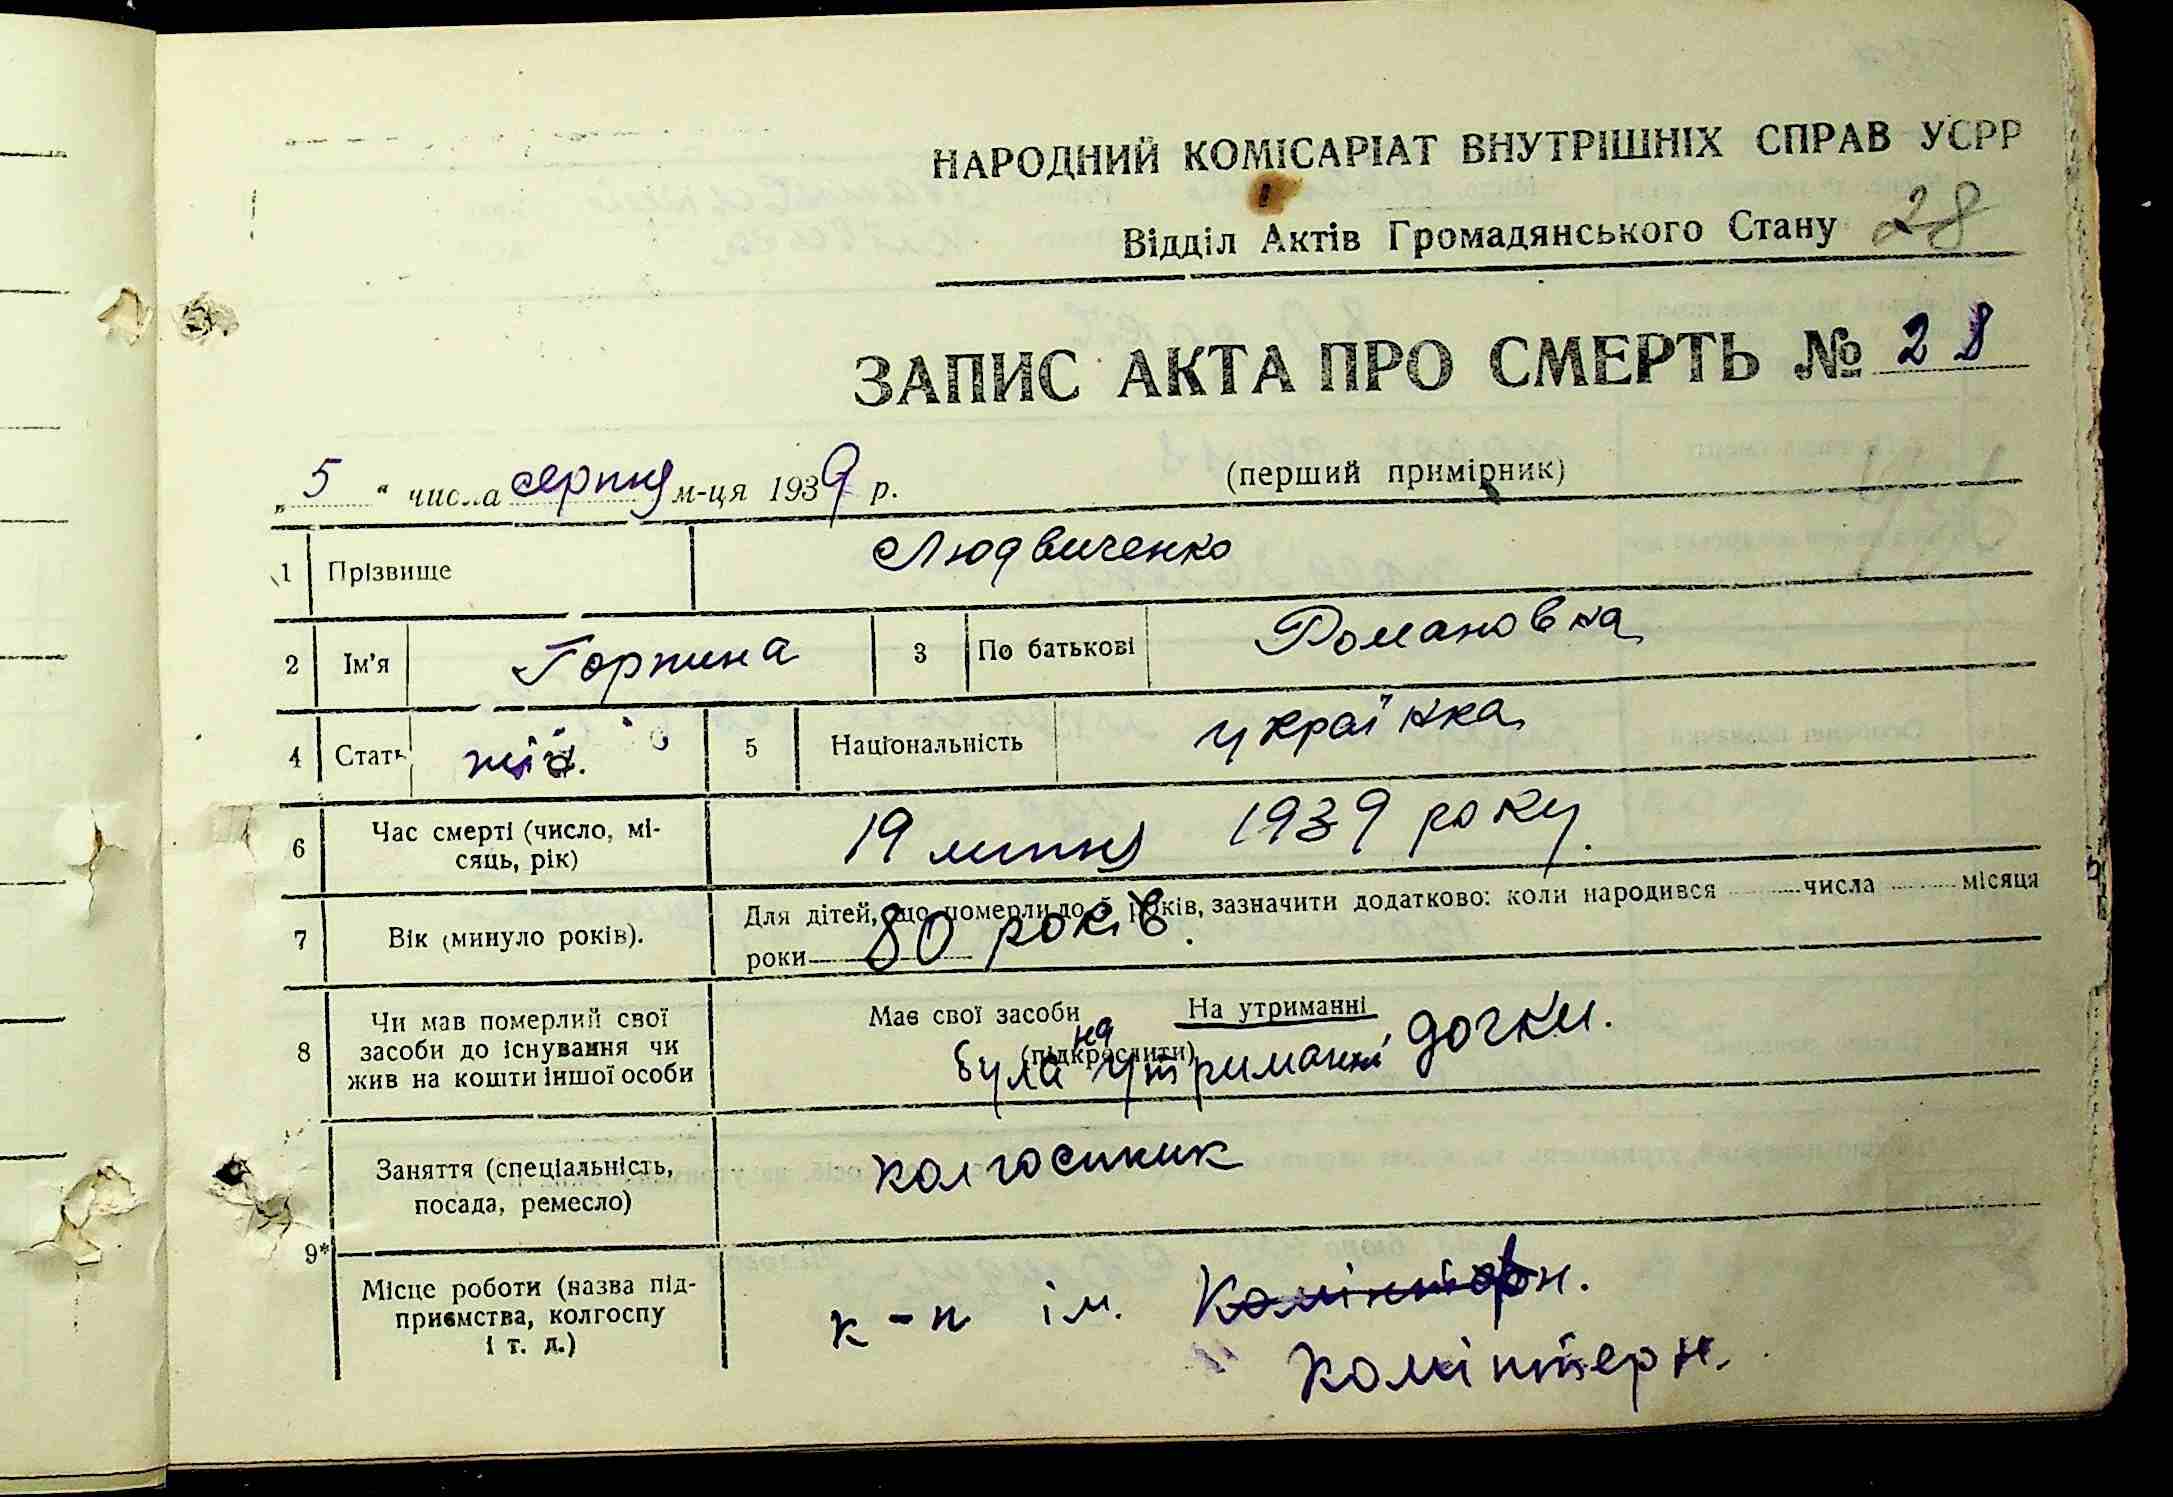 НАРОДНИЙ КОМІСАРІАТ ВНУТРІШНІХ СПРАВ УСРР
Відділ Актів Громадянського Стану 28
ЗАПИС АКТА ПРО СМЕРТЬ № 28
„5“ числа серпня м-ця 1939 р. (перший примірник)
1 Прізвище Людвиченко
2 Ім'я Горпина 3 По батькові Романовна
4 Стать жін. 5 Національність українка
6 Час смерті (число, мі-
сяць, рік) 19 липня 1939 року.
7 Вік (минуло років). Для дітей, що померли до 5 років, зазначити додатково: коли народився числа місяця
роки 80 років.
8 Чи мав померлий свої
засоби до існування чи
жив на кошти іншої особи
Має свої засоби На утриманні
(підкреслити)
була на утриманні дочки.
9* Заняття (спеціальність,
посада, ремесло) колгоспник
Місце роботи (назва під-
приємства, колгоспу
і т. д.)
к-п ім. Комінтерн.
Комінтерн.